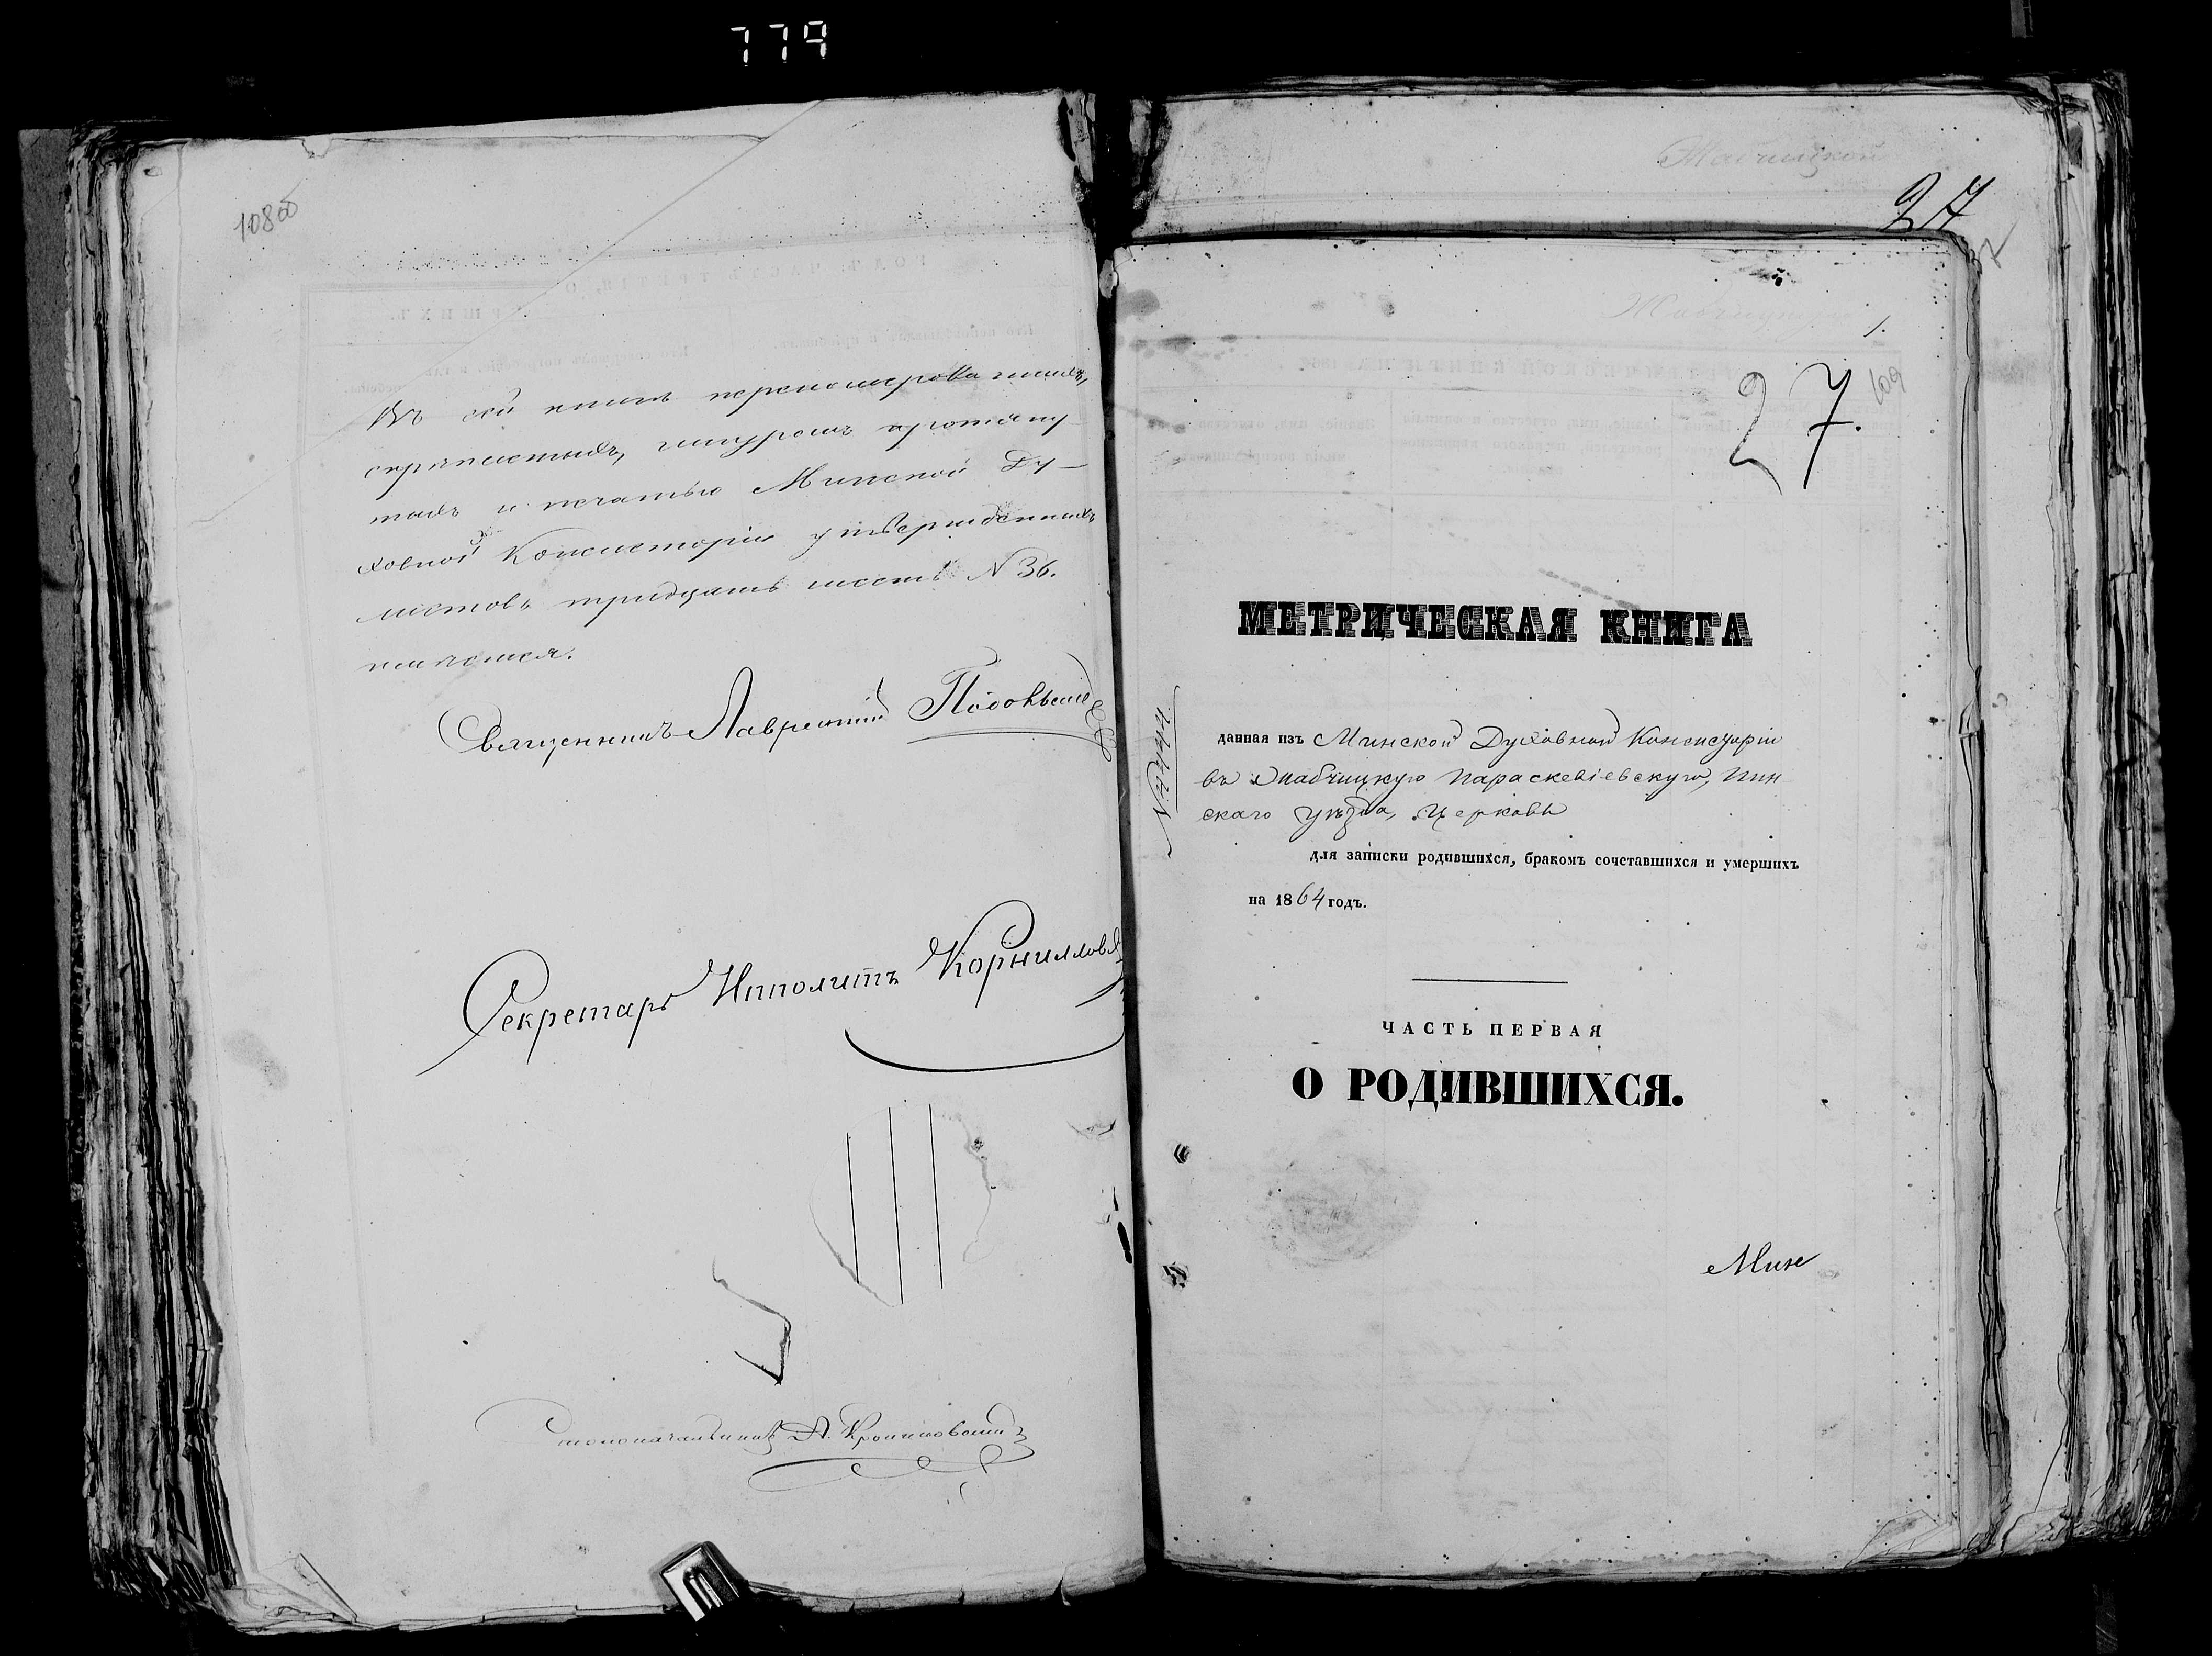 779
108об
Въ сей книгѣ перенумерованныхъ,
скрѣпленныхъ, шнуромъ протяну-
тыхъ и печатью Минской Ду-
ховной Консисторіи утвержденныхъ
листовъ тридцать шесть N 36.
Священникъ Лаврентій
Секретарь Ипполитъ Корниллов
Столоначальникъ А.
27
1.
27.
109
МЕТРИЧЕСКАЯ КНИГА
данная изъ Минской Духовной Консисторіи
въ Жабчицкую Параскевіевскую, Пин
скаго уѣзда, Церковь
для записки родившихся, бракомъ сочетавшихся и умершихъ
на 1864 годъ.
ЧАСТЬ ПЕРВАЯ
О РОДИВШИХСЯ.
Мин